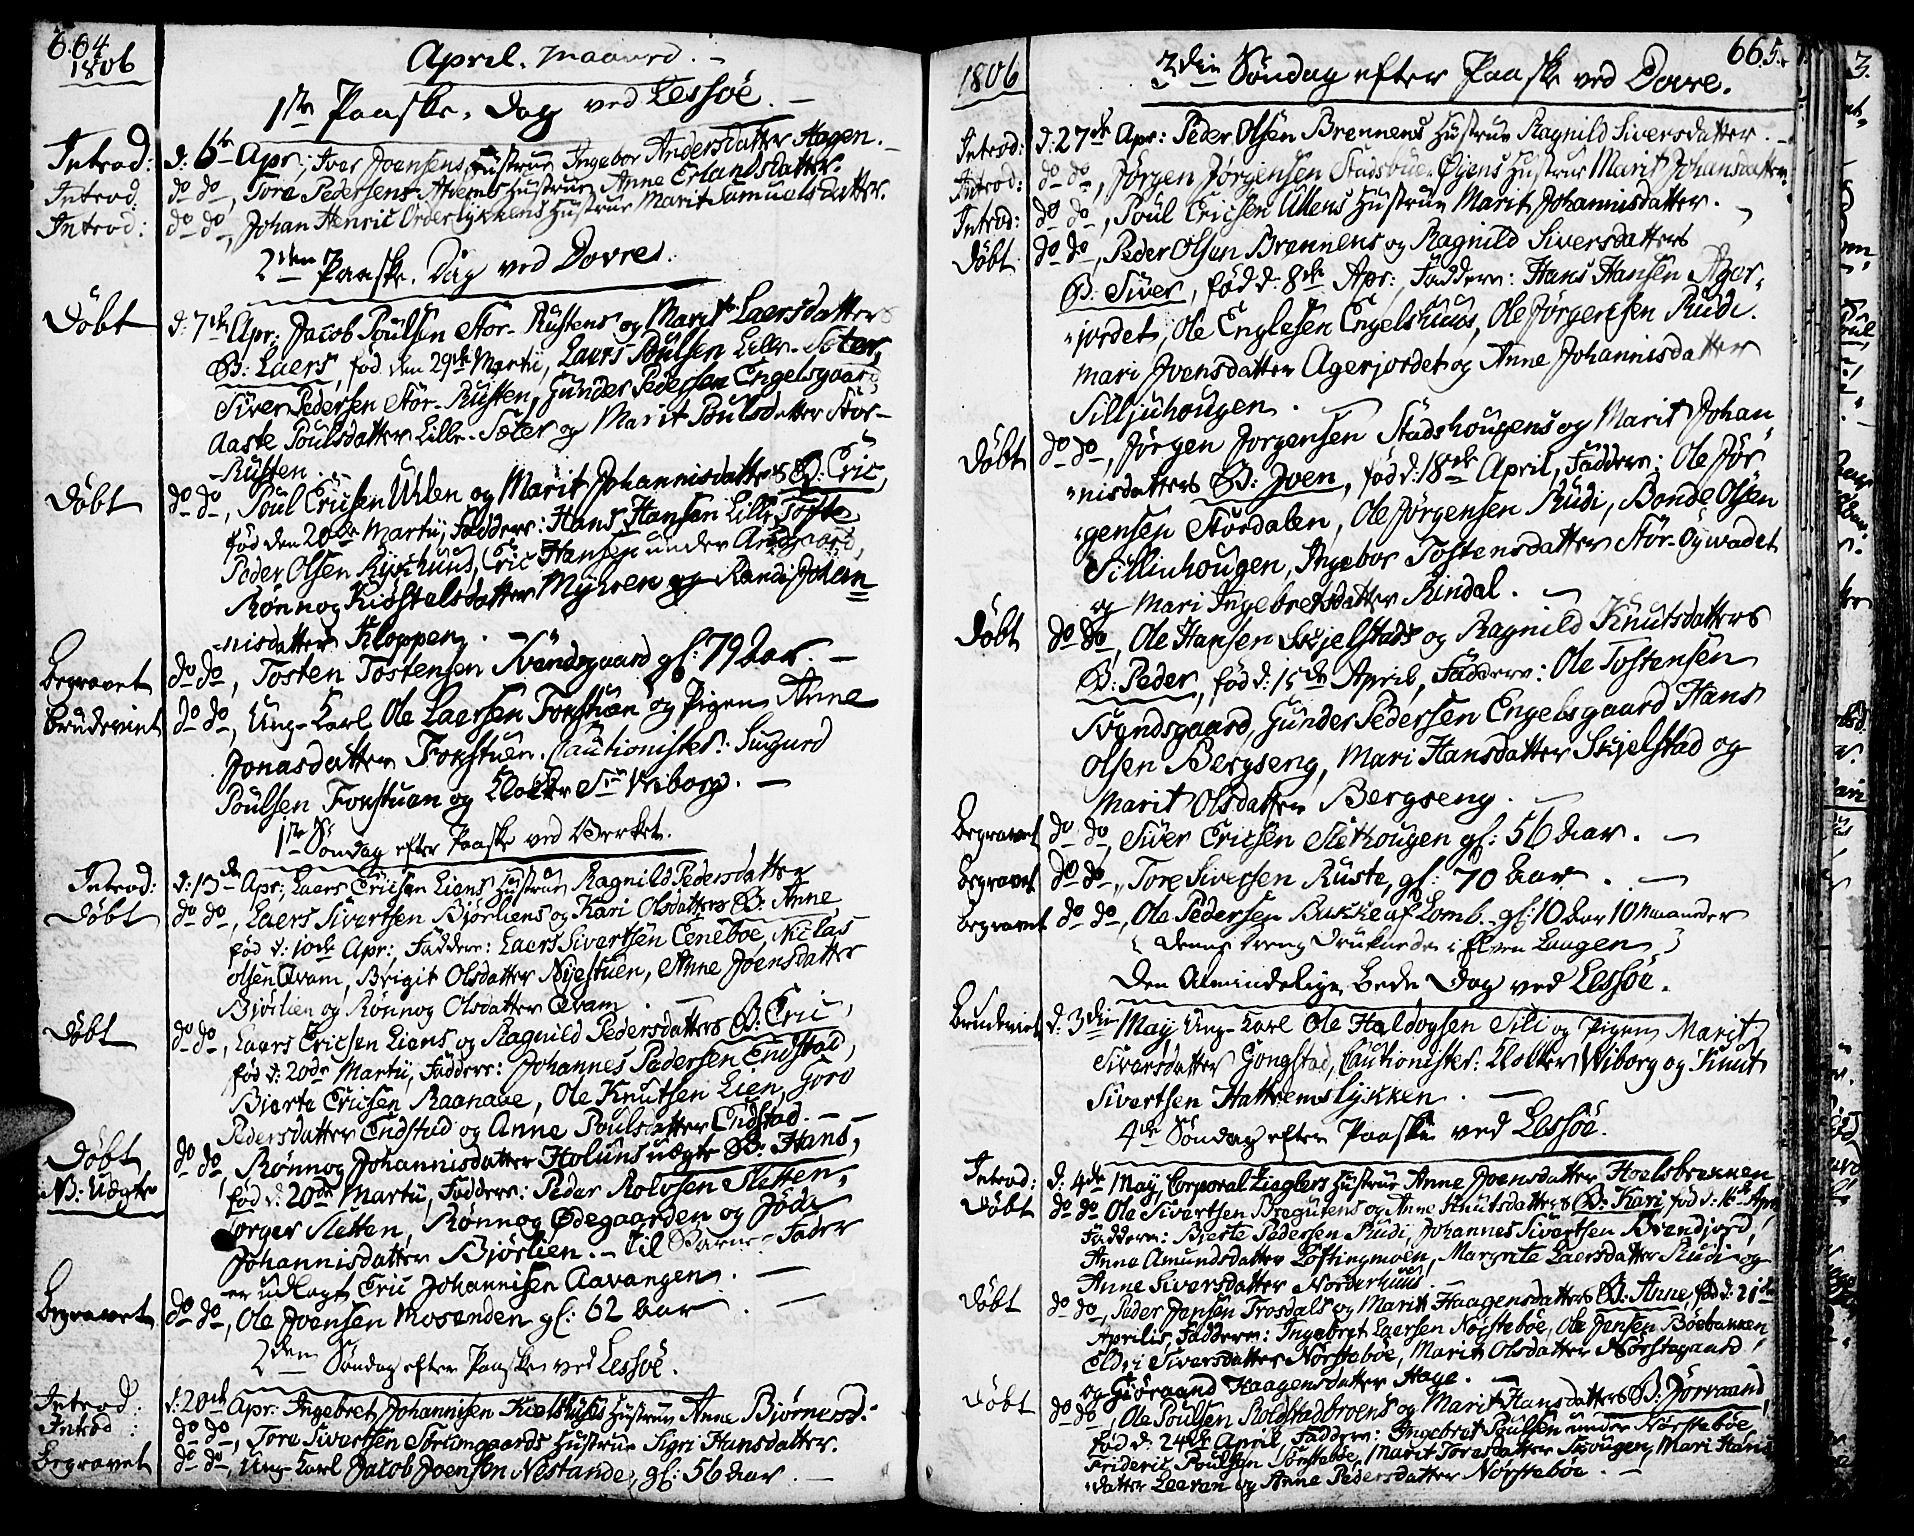 664
1806
April. Maaned. –
1ste Paaske, Dag ved Lessöe. –
Introd: d: 6te Apr; Iver Joensens Hustrue Ingebor Andersdatter Hagen. –
Introd: do do, Tore Pedersens Hustrue Anne Erlandsdatter.
Introd: do do, Johan Henric Örderlykkens Hustrue Marit Samuelsdatter.
2den Paaske, Dag ved Dovre.
Döbt d: 7de Apr; Jacob Poulsen Stor-Rustens og Marit Laersdatters
B: Laers, föd den 29de Martii, Laers Poulsen Lille-Sæter,
Siver Pedersen Stor-Rusten, Gunder Pedersen Engelsgaard,
Aaste Poulsdatter Lille-Sæter og Marit Poulsdatter Stor-
-Rusten. –
Döbt do do, Poul Ericsen Uhlen og Marit Johannisdatters B: Eric,
föd den 20de Martii, Faddere: Hans Hansen Lille Tofte
Peder Olsen Kirkhuus, Eric Hansen under
Rönnog Kiöstelsdatter Myhren og Randi Johan-
-nisdatter Kloppen. –
Begravet do do, Tosten Tostensen Svendsgaard gl: 79 Aar. –
Brudeviet do do, Ung-Karl Ole Laersen Fokstuen og Pigen Anne
Jonasdatter Fokstuen. Cautionister: Siugurd
Poulsen Fokstuen og Klokker Sr Wiborg. –
1ste Söndag efter Paaske ved Verket.
Introd: d: 13de Apr; Laers Ericsen Liens Hustrue Ragnild Pedersdatter
Döbt do do, Laers Sivertsen Bjørliens og Kari Olsdatters B: Anne
föd d: 10de Apr:, Faddere: Laers Sivertsen Eneboe, Niclas
Olsen Qvam, Brigit Olsdatter Nyestuen, Anne Joensdatter
Bjørlien og Rönnog Olsdatter Qvam. –
Döbt do do, Laers Ericsen Liens og Ragnild Pedersdatters B: Eric,
föd d: 20de Martii, Faddere: Johannes Pedersen Endstad,
Bjerte Ericsen Raanaae, Ole Knutsen Lien, Goro
Pedersdatter Endstad og Anne Poulsdatter Endstad. –
Döbt do do, Rönnog Johannisdatter Holuns uægte B: Hans,
NB: Uægte föd d: 20de Martii, Faddere: Peder Rolvsen Sletten,
Torger Sletten, Rönnog Ödegaarden og
Johannisdatter Bjørlien. – Til Barne-Fader
er udlagt Eric Johannisen Aavangen. –
Begravet do do, Ole Joensen Mosenden gl: 62 Aar. –
2den Söndag efter Paaske ved Lessöe.
Introd: d: 20de Apr: Ingebret Johannisen Kielshuses Hustrue Anne Björnsd:
Introd: do do, Tore Sivertsen Strumgaards Hustrue Sigri Hansdatter.
Begravet do do, Ung-Karl Jacob Joensen Nestande, gl: 56 Aar. –
665.
1806
3die Söndag efter Paaske ved Dovre.
Introd: d: 27de Apr: Peder Olsen Brennens Hustrue Ragnild Siversdatter. –
Introd: do do, Jörgen Jörgensen Hustrue Marit Johansdatter
Introd: do do, Poul Ericsen Ullens Hustrue Marit Johannisdatter. –
Döbt do do, Peder Olsen Brennens og Ragnild Siversdatters
B: Siver, föd d: 8de Apr:, Faddere: Hans Hansen Ager-
-jordet, Ole Englesen Engelshuus, Ole Jörgensen Rudi.
Mari Jvensdatter Agerjordet og Anne Johannisdatter
Silljuhougen. –
Döbt do do, Jörgen Jorgensen Stadshougens og Marit Johan-
-nisdatters B: Jven, föd d: 18de April, Faddere: Ole Jör-
-gensen Stordalen, Ole Jörgensen Rudi, Bonde Olsen
Silliuhougen, Ingebor Tostensdatter Stör-Öywadet
og Mari Ingebretsdatter Rindal. –
Döbt do do, Ole Hansen Skjelstads og Ragnild Knutsdatters
B: Peder, föd d: 15de April, Faddere: Ole Tostensen
Svendsgaard, Gunder Pedersen Engelsgaard Hans
Olsen Bergseng, Mari Hansdatter Skjelstad og
Marit Olsdatter Bergseng. –
Begravet do do, Siver Ericsen Slethougen gl: 56 Aar. –
Begravet do do, Tore Siversen Ruste, gl: 70 Aar. –
Begravet do do, Ole Pedersen Bukke af Lomb – gl: 10 Aar 10 Maaneder
( denne Dreng druknede i Elven Laugen )
Den Almindelige Bede Dag ved Lessöe.
Brudeviet d: 3die May Ung-Karl Ole Haldogsen Sili og Pigen Marit
Siversdatter Gongstad, Cautionister: Klokker Wiborg og Knut
Sivertsen Hattremslykken. –
4de Söndag efter Paaske ved Lessöe.
Introd: d: 4de May, Corporal Zieglers Hustrue Anne Joensdatter Hoelsbrekken
Döbt do do Ole Sivertsen Bregutens og Anne Knutsdatters B: Kari, föd d: 16de April
Faddere: Bjerte Pedersen Rudi, Johannes Sivertsen Brendjord,
Anne Amundsdatter Loftingmoen, Margrite Laersdatter Rudi og
Anne Siversdatter Norderhuus. –
Döbt do do, Peder Jensen Trosdals og Marit Haagensdatters B: Anne, föd d: 21de
Aprilis, Faddere: Ingebret Laersen Nörsteböe, Ole Jensen Böebakken,
Eldri Siversdatter Nörsteböe, Marit Olsdatter Nörstegaard,
og Giöraand Haagensdatter Hage. –
Döbt do do, Ole Poulsen Roldstadbroens og Marit Hansdatters B: Jöraand,
föd d: 24de April, Faddere: Ingebret Poulsen under Nörsteböe,
Frideric Poulsen Törsteböe, Marit Toresdatter Skougen, Mari Hans-
-datter Leeren og Anne Pedersdatter Nörsteböe. –